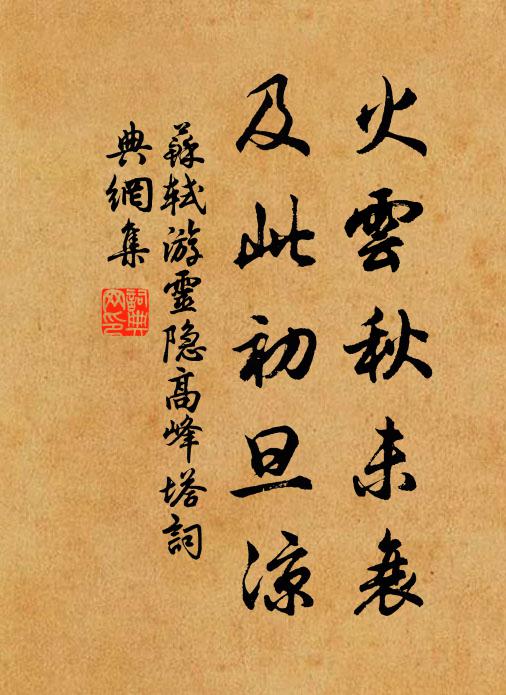 火雲秋未衰
及此初旦涼
蘇軾游靈隐高峰塔詞
典網集
詞典網印